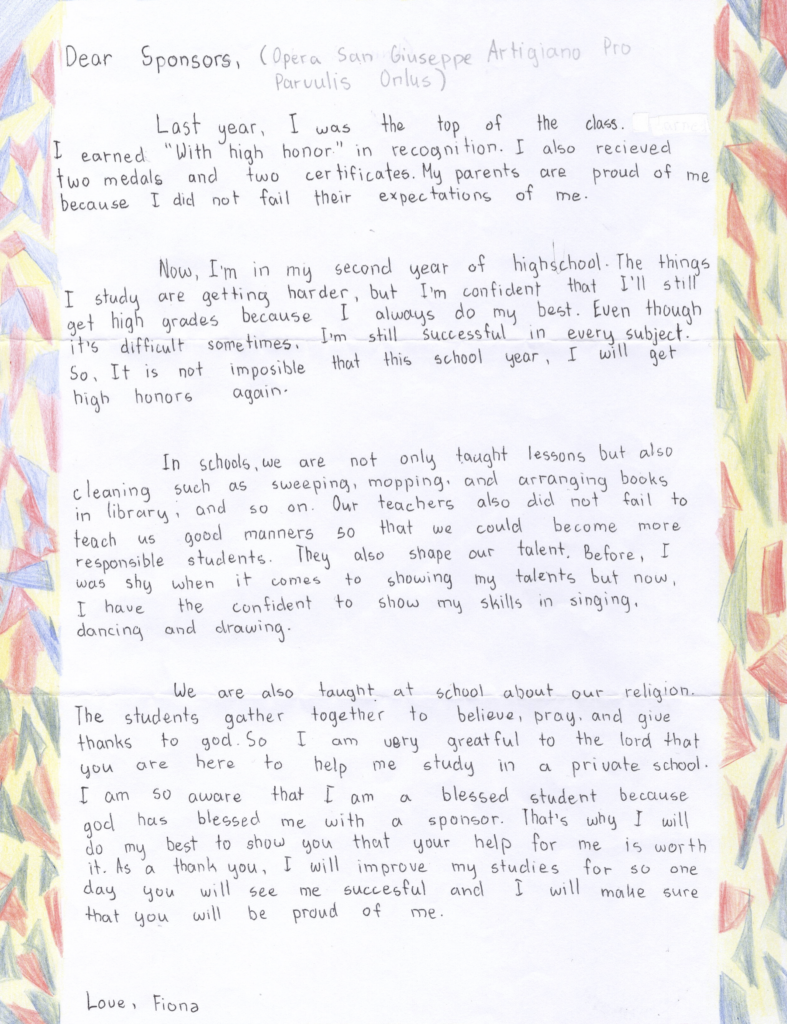 Dear Sponsors, (Opera San Giuseppe Artigiano Pro
Parvulis Onlus)
Last year, I was the top of the class.
I earned "With high honor" in recognition. I also recieved
two medals and two certificates. My parents are proud of me
because I did not fail their expectations of me.
Now, I'm in my second year of highschool. The things
I study are getting harder, but I'm confident that I'll still
get high grades because I always do my best. Even though
it's difficult sometimes, I'm still successful in every subject.
So, It is not imposible that this school year, I will get
high honors again.
In schools, we are not only taught lessons but also
cleaning such as sweeping, mopping, and arranging books
in library, and so on. Our teachers also did not fail to
teach us good manners so that we could become more
responsible students. They also shape our talent. Before, I
was shy when it comes to showing my talents but now,
I have the confident to show my skills in singing,
dancing and drawing.
We are also taught at school about our religion.
The students gather together to believe, pray, and give
thanks to god. So I am very greatful to the lord that
you are here to help me study in a private school.
I am so aware that I am a blessed student because
god has blessed me with a sponsor. That's why I will
do my best to show you that your help for me is worth
it. As a thank you, I will improve my studies for so one
day you will see me succesful and I will make sure
that you will be proud of me.
Love, Fiona